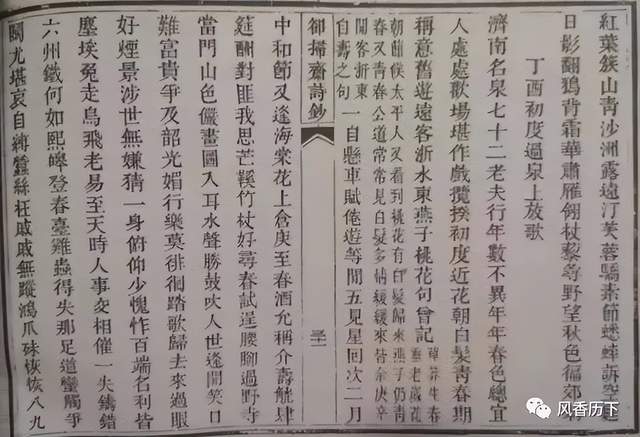 紅葉簇山青沙洲露遠汀芙蓉驕素節蟋蟀訴空庭
日影翻鴉背霜華肅雁翎杖藜尋野望秋色徧郊坰
丁酉初度過泉上放歌
濟南名泉七十二老夫行年數不異年年春色總宜
人處處歡場堪作戲攬揆初度近花朝白髮青春期
稱意舊遊遠客浙水東燕子桃花句曾記
太平人又看到桃花有白髮歸來燕子仍青
春又青春公道常常見白髮多情緩緩來昔余庚辰
閒客浙東
自壽之句
一自懸車賦倦遊等閒五見星回次二月
卻掃齋詩鈔
中和節又逢海棠花上倉庚至春酒允稱介壽觥肆
筵酬對匪我思芒鞵竹杖好尋春試逞腰腳過野寺
當門山色儼畫圖入耳水聲勝鼓吹人世逢開笑口
難富貴爭及韶光媚行樂莫徘徊踏歌歸去來過眼
好煙景涉世無嫌猜一身俯仰少愧怍百端名利皆
塵埃兔走烏飛老易至天時人事交相催一失鑄錯
六州鐵何如熙皞登春臺雞蟲得失那足道蠻觸爭
鬭尤堪哀自縛蠶絲枉戚戚無蹤鴻爪殊恢恢八九
风香历下